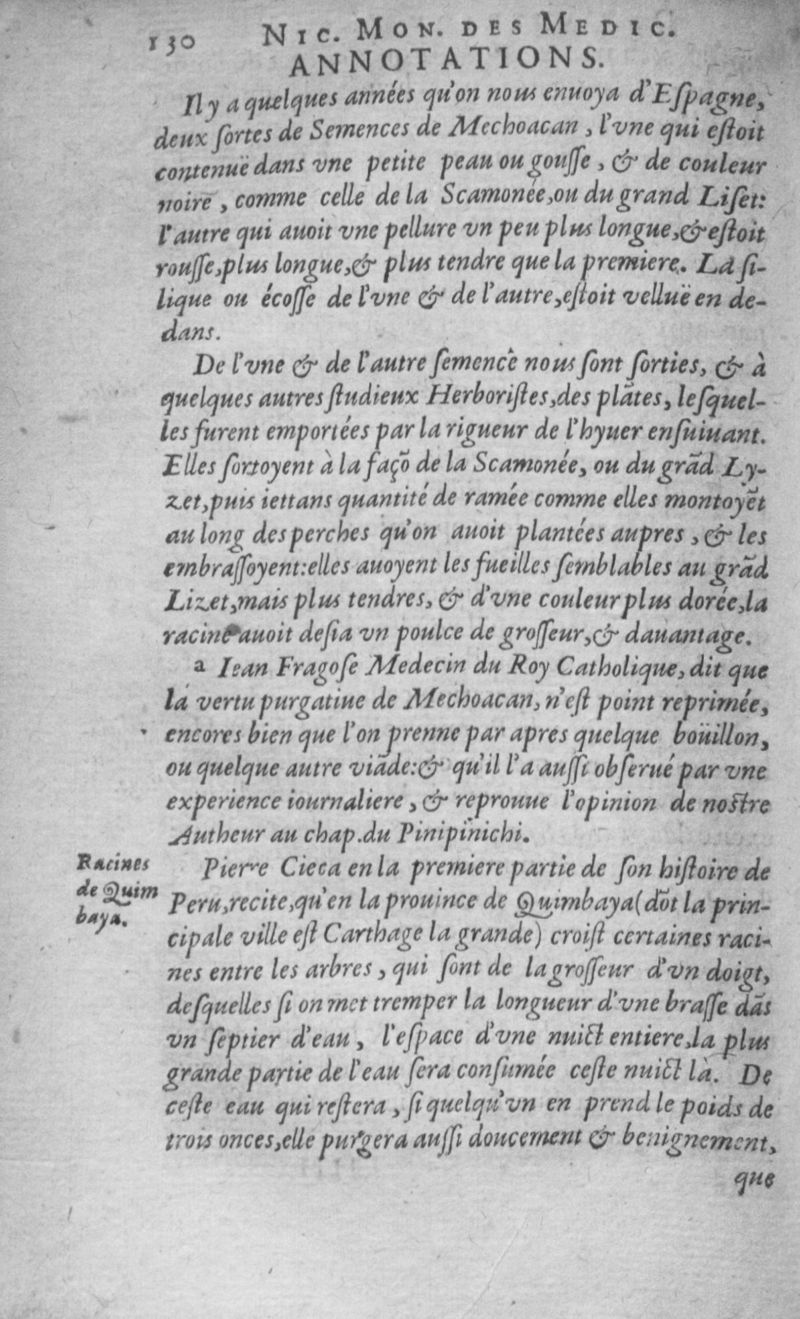 130 NIC. MON. DES MEDIC.
ANNOTATIONS.
Il y a quelques années qu'on nous enuoya d'Eſpagne,
deux ſortes de Semences de Mechoacan, l'vne qui eſtoit
contenuë dans vne petite peau ou gouſſe, & de couleur
noire, comme celle de la Scamonée, ou du grand Liſet:
l'autre qui auoit vne pellure vn peu plus longue, & eſtoit
rouſſe, plus longue, & plus tendre que la premiere. La ſi-
lique ou écoſſe de l'vne & de l'autre, eſtoit velluë en de-
dans.
De l'vne & de l'autre ſemence nous ſont ſorties, & à
quelques autres ſtudieux Herboriſtes, des plātes, leſquel-
les furent emportées par la rigueur de l'hyuer enſuiuant.
Elles ſortoyent à la façō de la Scamonée, ou du grād Ly-
zet, puis iettans quantité de ramée comme elles montoyēt
au long des perches qu'on auoit plantées aupres, & les
embraſſoyent: elles auoyent les fueilles ſemblables au grād
Lizet, mais plus tendres, & d'vne couleur plus dorée, la
racine auoit deſia vn poulce de groſſeur, & dauantage.
a Iean Fragoſe Medecin du Roy Catholique, dit que
la vertu purgatiue de Mechoacan, n'eſt point reprimée,
encores bien que l'on prenne par apres quelque boüillon,
ou quelque autre viāde: & qu'il l'a auſſi obſerué par vne
experience iournaliere, & reprouue l'opinion de noſtre
Autheur au chap. du Pinipinichi.
Racines
de Quim
baya.
Pierre Cieca en la premiere partie de ſon hiſtoire de
Peru, recite, qu'en la prouince de Quimbaya (dōt la prin-
cipale ville eſt Carthage la grande) croiſt certaines raci-
nes entre les arbres, qui ſont de la groſſeur d'vn doigt,
deſquelles ſi on met tremper la longueur d'vne braſſe dās
vn ſeptier d'eau, l'eſpace d'vne nuict entiere, la plus
grande partie de l'eau ſera conſumée ceſte nuict là. De
ceſte eau qui reſtera, ſi quelqu'vn en prend le poids de
trois onces, elle purgera auſſi doucement & benignement,
que